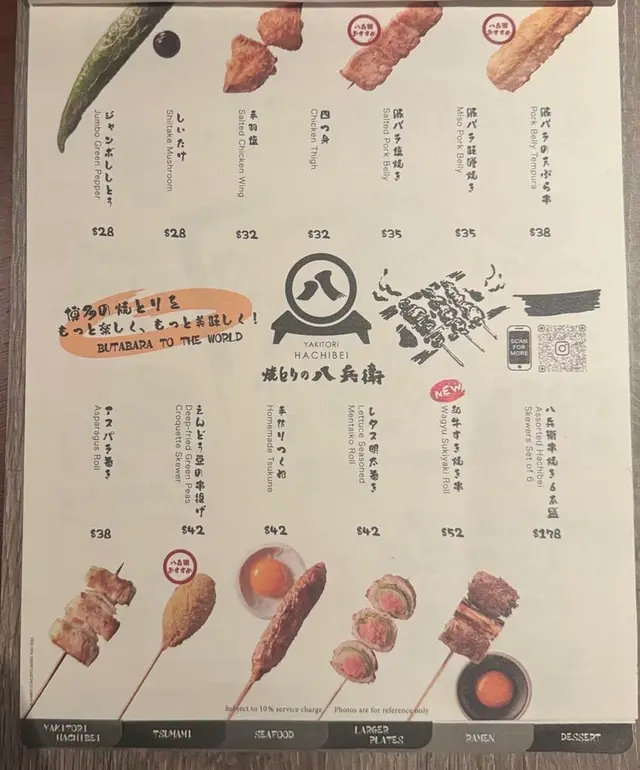 八兵衛
おすすめ
八兵衛
おすすめ
豚バラの天ぷら串
Pork Belly Tempura
$38
豚バラ味噌焼き
Miso Pork Belly
$35
豚バラ塩焼き
Salted Pork Belly
$35
四つ身
Chicken Thigh
$32
手羽塩
Salted Chicken Wing
$32
しいたけ
Shiitake Mushroom
$28
ジャンボししとう
Jumbo Green Pepper
$28
博多の焼とりを
もっと楽しく、もっと美味しく!
BUTABARA TO THE WORLD
八
YAKITORI
HACHIBEI
焼とりの八兵衛
SCAN
FOR
MORE
八兵衛串焼き6本盛
Assorted Hachibei
Skewers Set of 6
$178
NEW
和牛すき焼き串
Wagyu Sukiyaki Roll
$52
レタス明太巻き
Lettuce Seasoned
Mentaiko Roll
$42
手作りつくね
Homemade Tsukune
$42
えんどう豆の串揚げ
Deep-fried Green Peas
Croquette Skewer
$42
アスパラ巻き
Asparagus Roll
$38
八兵衛
おすすめ
Subject to 10% service charge
Photos are for reference only
YAKITORI
HACHIBEI
TSUMAMI
SEAFOOD
LARGER
PLATES
RAMEN
DESSERT